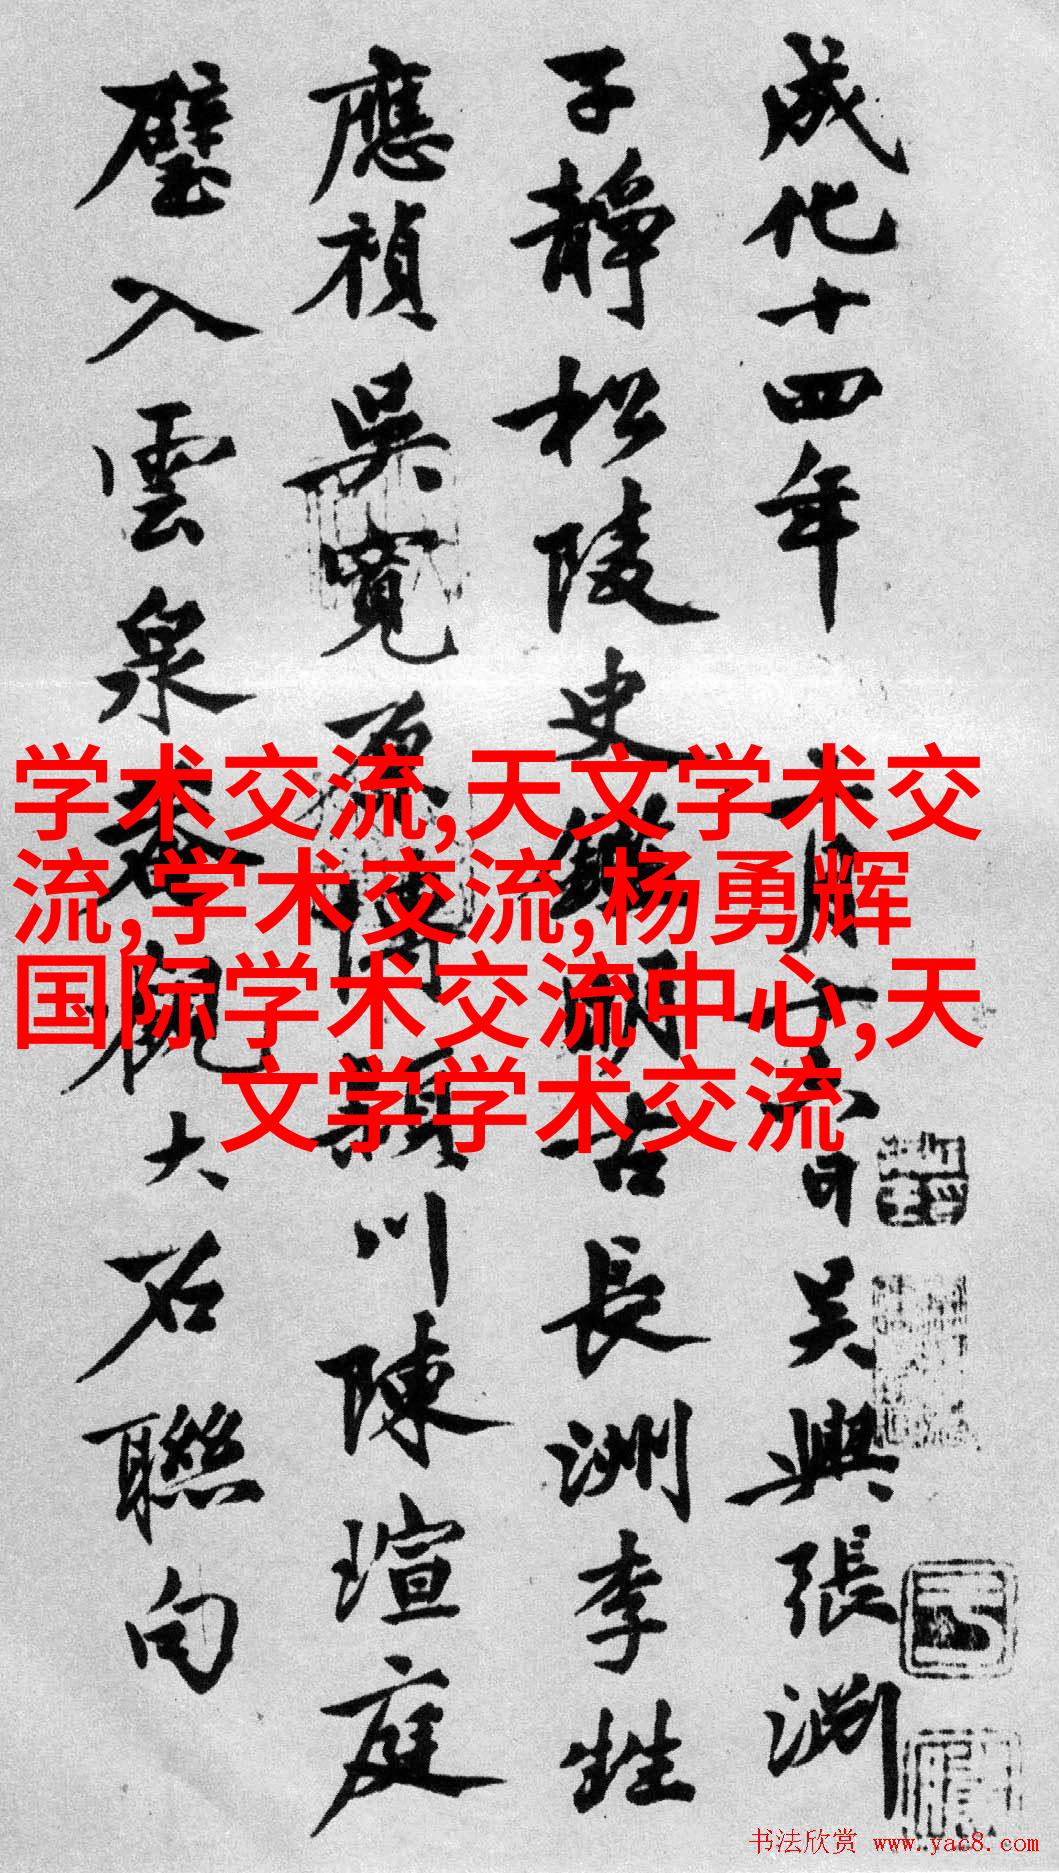 成化十四年月十日吳興張淵
子靜松陵史鑑明古長洲李甡
應禎吳寬原博潁川陳瑄庭
璧入雲泉菴觀大石聯句
学术交流,天文学术交
流,学术交流,杨勇辉
国际学术交流中心,天
文学学术交流
书法欣赏 www.yac8.com